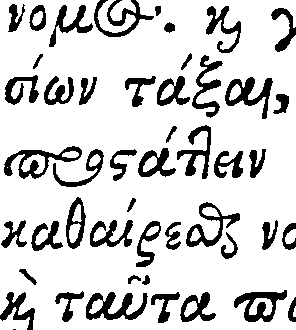 νομος. καὶ
σίων τάξαι,
προστάτλειν
καθαίρεσθ
καὶ ταῦτα πα